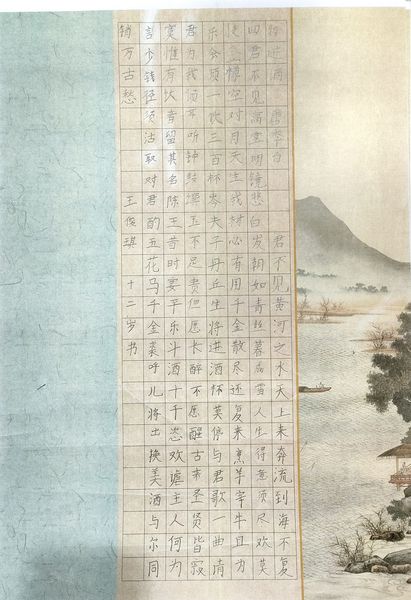 将进酒 唐李白 君不见黄河之水天上来奔流到海不复
回君不见高堂明镜悲白发朝如青丝暮成雪人生得意须尽欢莫
使金樽空对月天生我材必有用千金散尽还复来烹羊宰牛且为
乐会须一饮三百杯岑夫子丹丘生将进酒杯莫停与君歌一曲请
君为我倾耳听钟鼓馔玉不足贵但愿长醉不愿醒古来圣贤皆寂
寞惟有饮者留其名陈王昔时宴平乐斗酒十千恣欢谑主人何为
言少钱径须沽取对君酌五花马千金裘呼儿将出换美酒与尔同
销万古愁 王俊琪 十二岁书